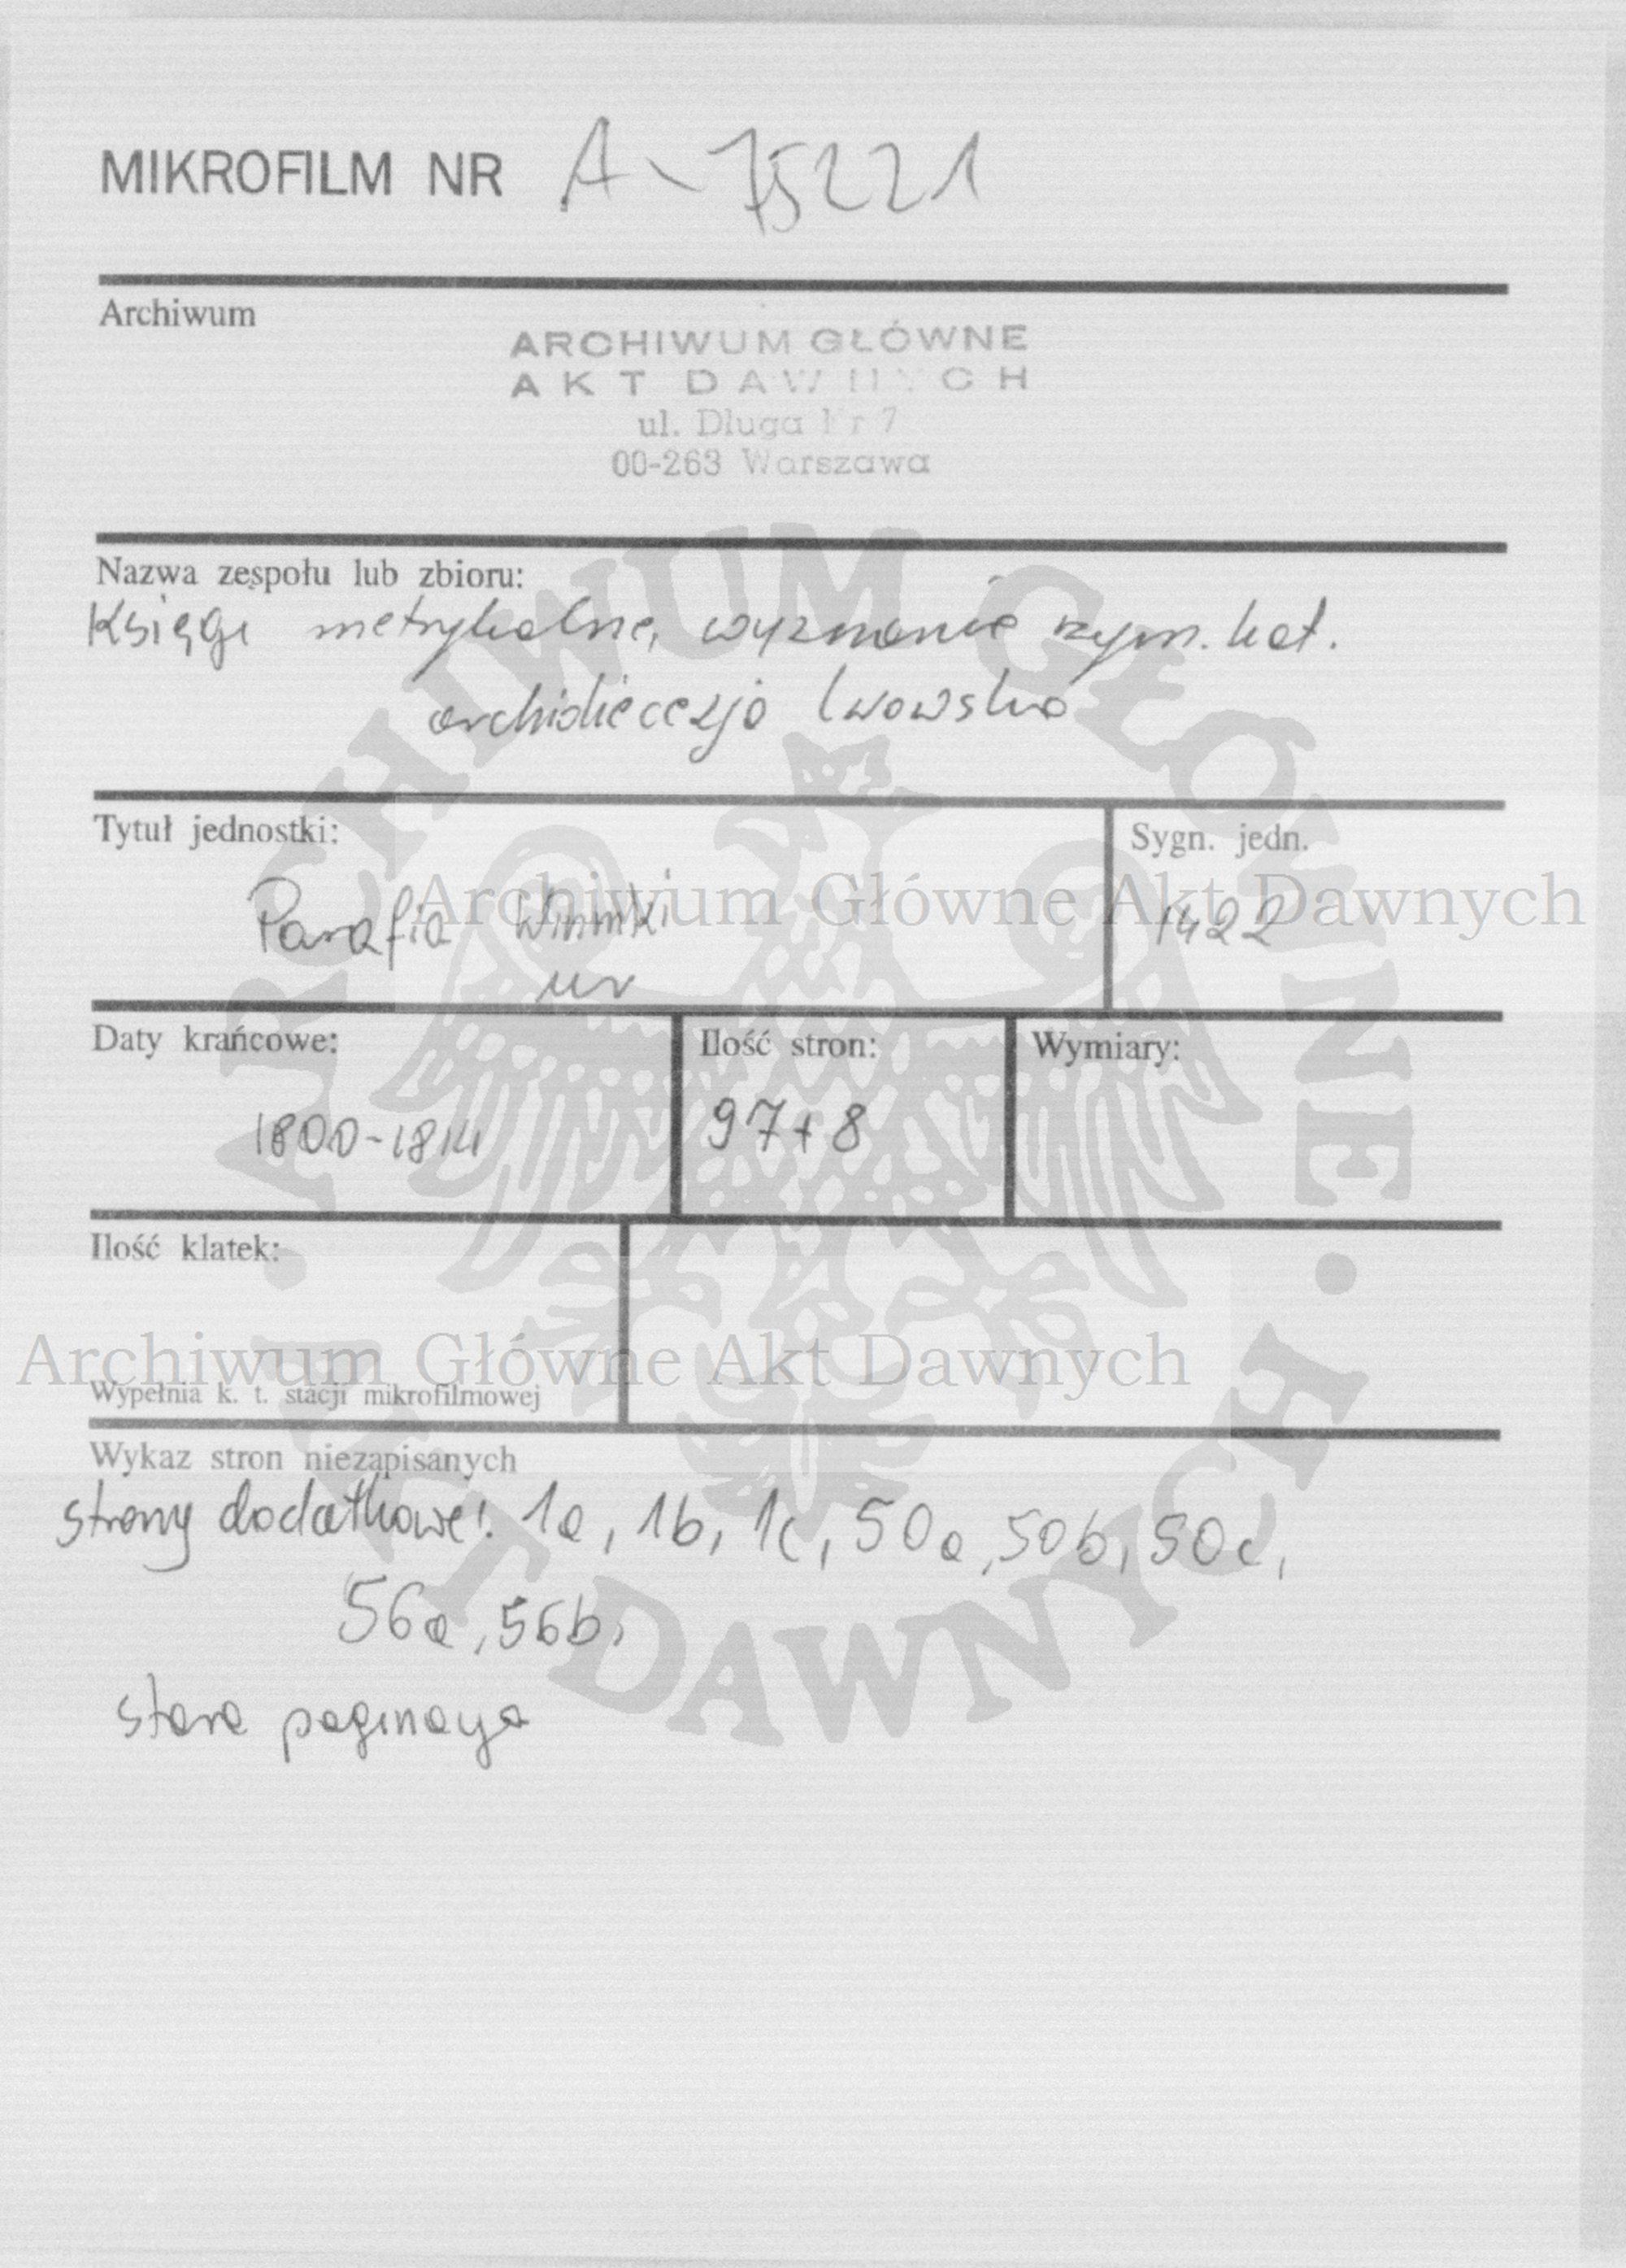 MIKROFILM NR A-75221
Archiwum
ARCHIWUM GŁÓWNE
AKT DAWNYCH
ul. Długa Nr 7
00-263 Warszawa
Nazwa zespołu lub zbioru:
Księgi metrykalne, wyznanie rzym. kat.
archidiecezja lwowska
Tytuł jednostki:
Sygn. jedn.
Parafia Winniki
1422
ur
Daty krańcowe:
Ilość stron:
Wymiary:
1800-1814
97+8
Ilość klatek:
Wypełnia k. t. stacji mikrofilmowej
Wykaz stron niezapisanych
strony dodatkowe: 1a, 1b, 1c, 50a, 50b, 50c,
56a, 56b,
stara paginacja
Archiwum Główne Akt Dawnych
Archiwum Główne Akt Dawnych
· ARCHIWUM GŁÓWNE · AKT DAWNYCH